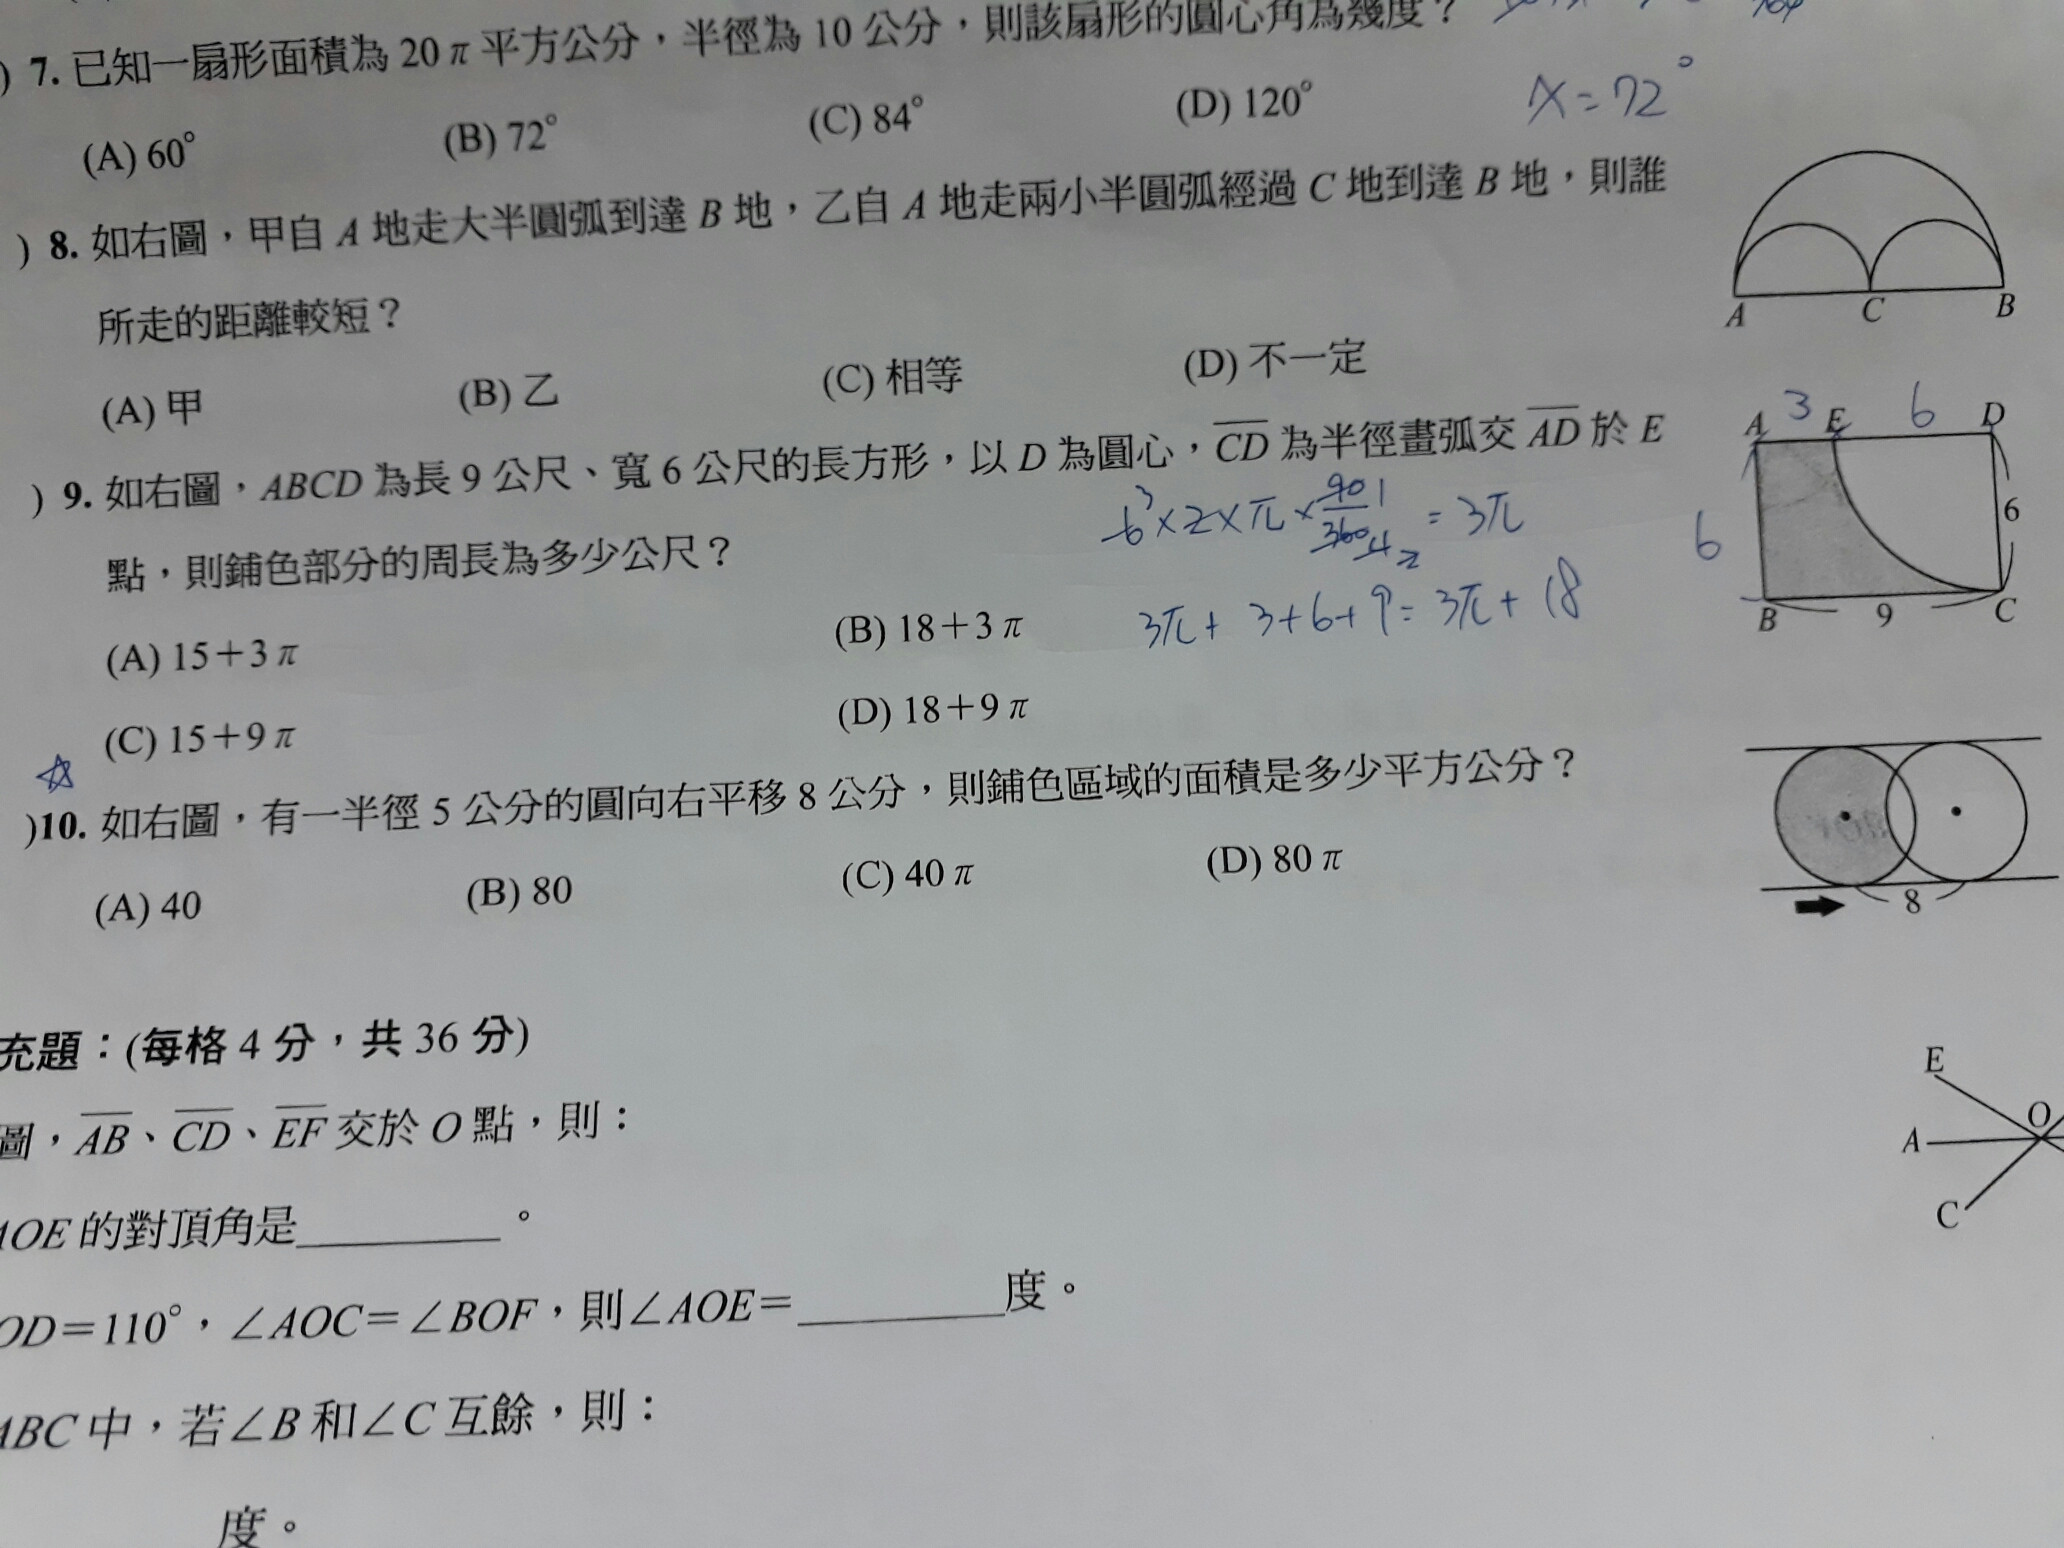 ) 7. 已知一扇形面積為 20π 平方公分，半徑為 10 公分，則該扇形的圓心角為幾度？
(A) 60° (B) 72° (C) 84° (D) 120° x=72°
) 8. 如右圖，甲自 A 地走大半圓弧到達 B 地，乙自 A 地走兩小半圓弧經過 C 地到達 B 地，則誰
所走的距離較短？
A C B
(A) 甲 (B) 乙 (C) 相等 (D) 不一定
) 9. 如右圖，ABCD 為長 9 公尺、寬 6 公尺的長方形，以 D 為圓心，CD 為半徑畫弧交 AD 於 E
點，則鋪色部分的周長為多少公尺？
6×2×π×90/360=3π
3π+3+6+9=3π+18
A 3 E 6 D
6 6
B 9 C
(A) 15+3π (B) 18+3π
(C) 15+9π (D) 18+9π
☆
)10. 如右圖，有一半徑 5 公分的圓向右平移 8 公分，則鋪色區域的面積是多少平方公分？
(A) 40 (B) 80 (C) 40π (D) 80π
8
充題：(每格 4 分，共 36 分)
圖，AB、CD、EF 交於 O 點，則：
E
A O
C
AOE 的對頂角是________。
OD=110°，∠AOC=∠BOF，則∠AOE=________度。
ABC 中，若∠B 和∠C 互餘，則：
度。